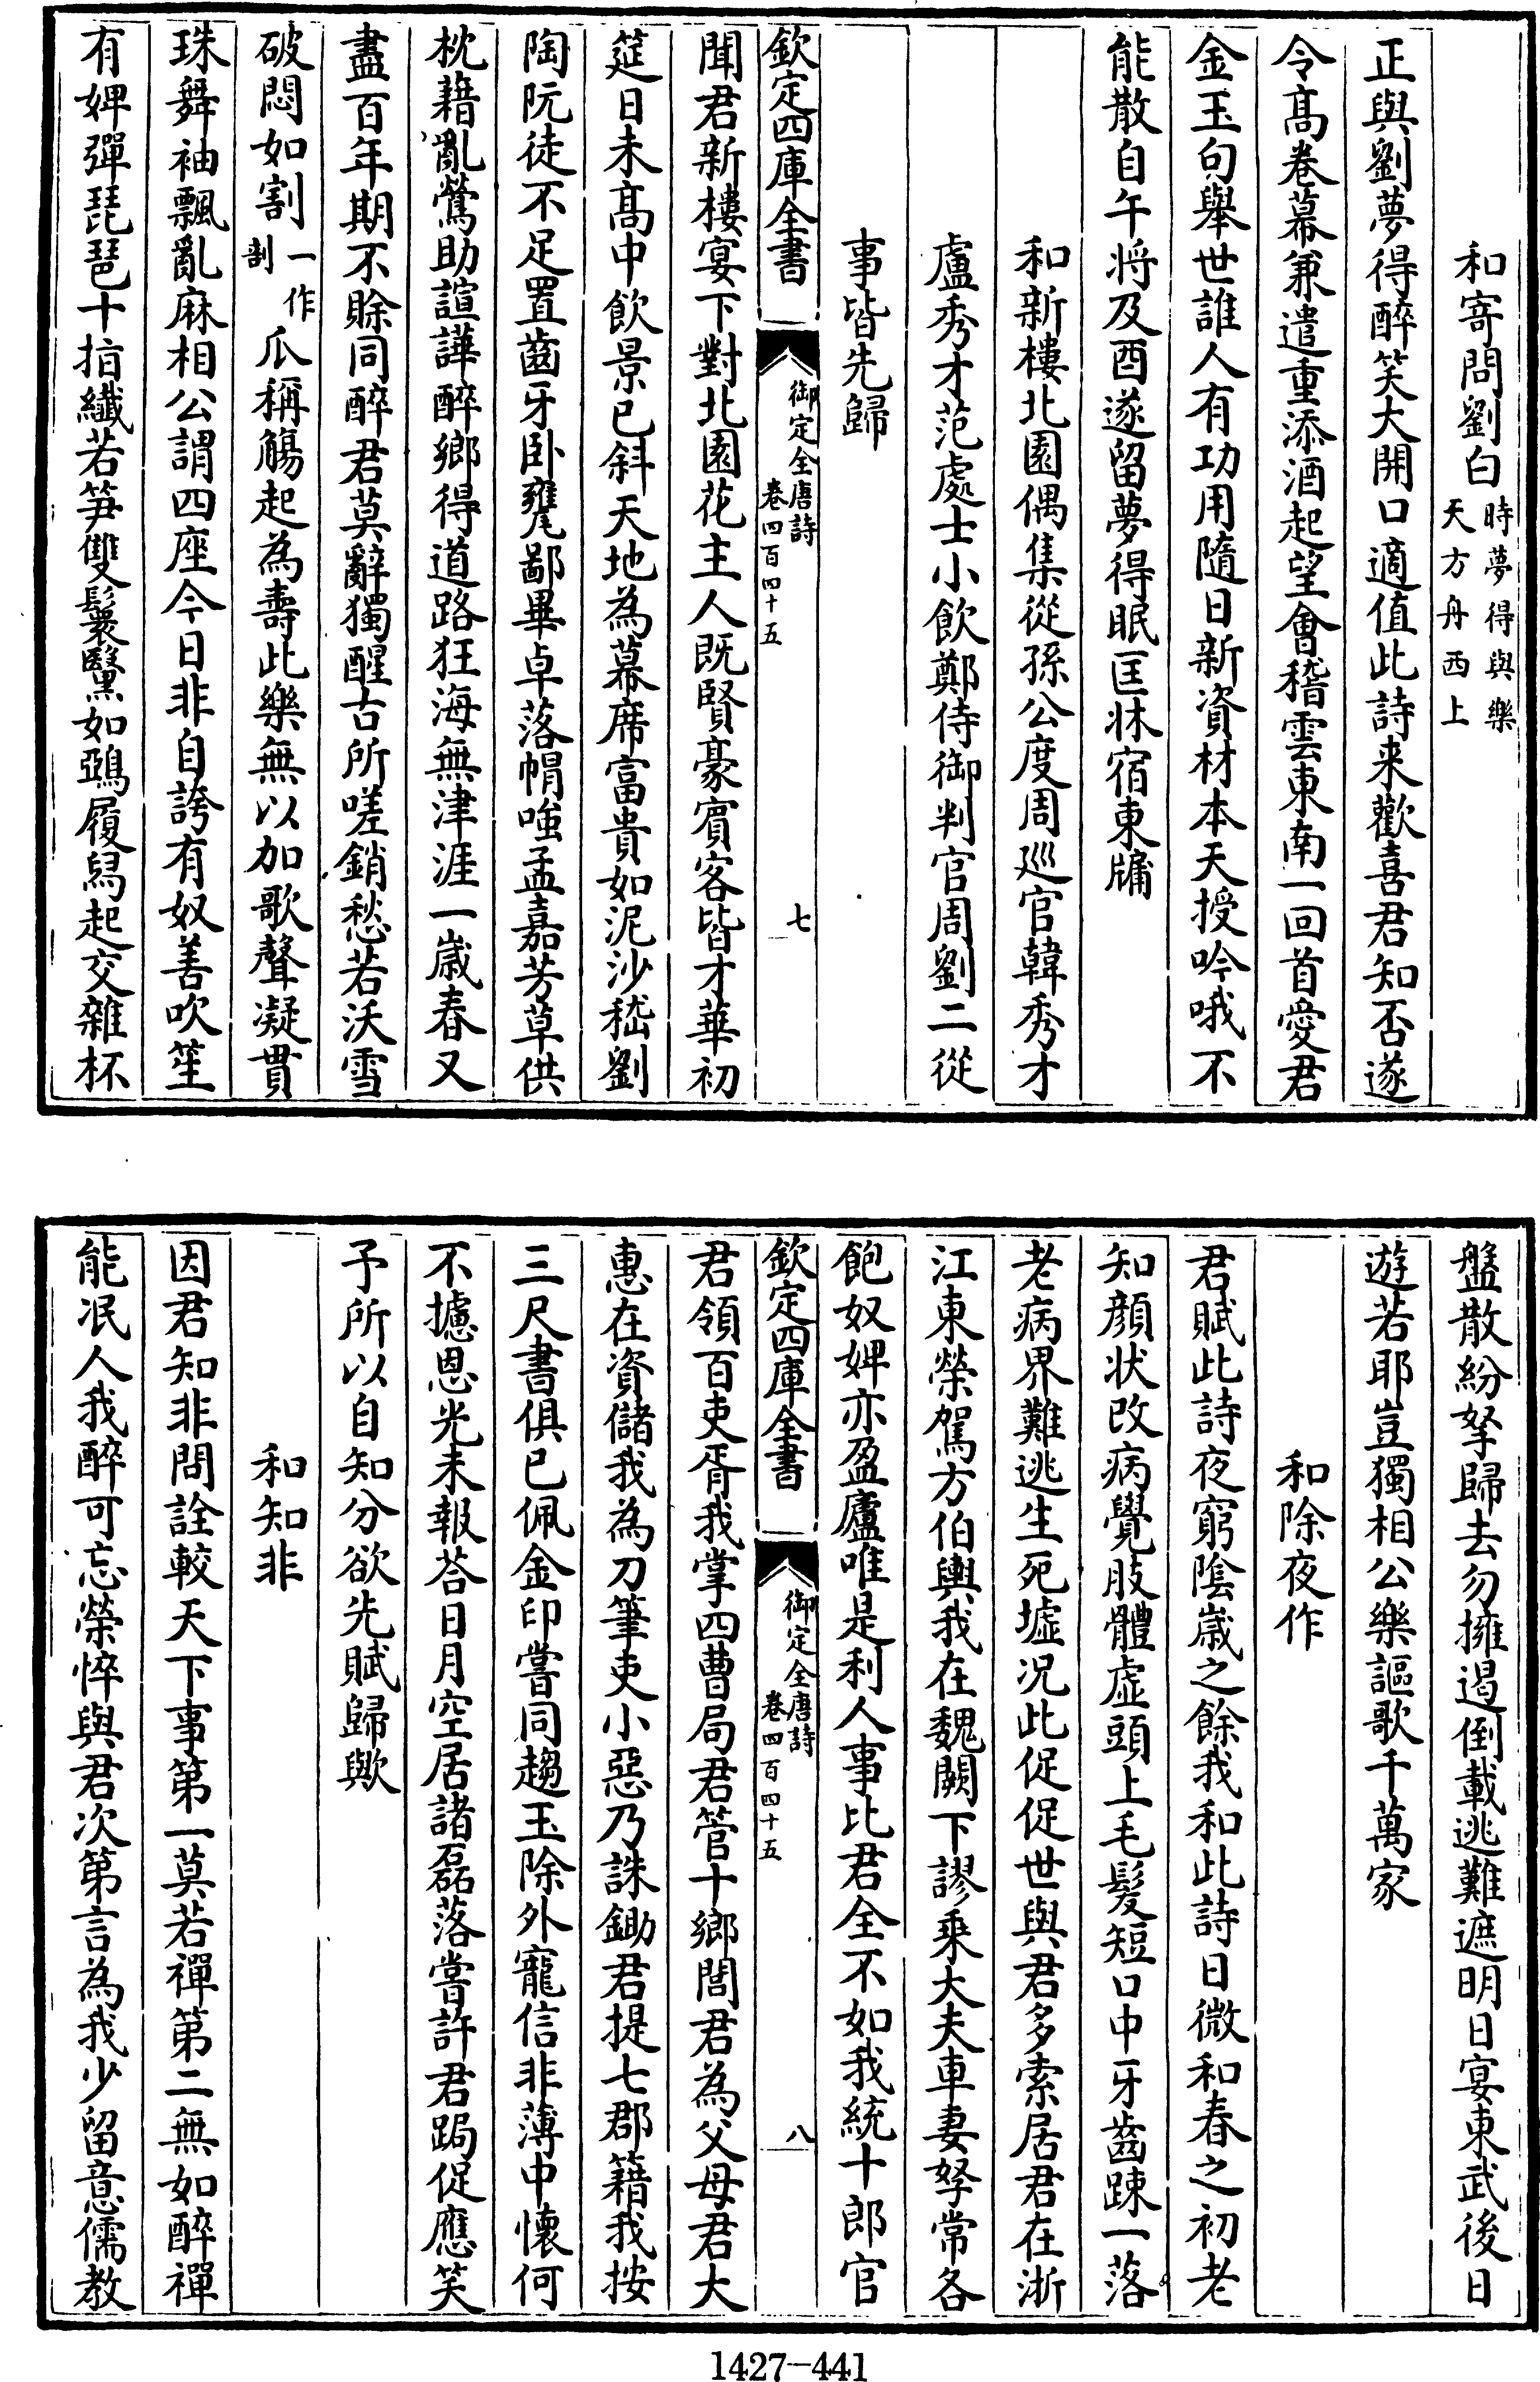 和寄問劉白時夢得與樂
天方舟西上
正與劉夢得醉笑大開口適值此詩来歡喜君知否遂
令髙卷幕兼遣重添酒起望會稽雲東南一回首愛君
金玉句舉世誰人有功用隨日新資材本天授吟哦不
能散自午将及酉遂留夢得眠匡牀宿東牖
和新樓北園偶集從孫公度周巡官韓秀才
盧秀才范處士小飲鄭侍御判官周劉二從
事皆先歸
欽定四庫全書
御定全唐詩
卷四百四十五
七
聞君新樓宴下對北園花主人既賢豪賓客皆才華初
筵日未髙中飲景已斜天地為幕席富貴如泥沙嵇劉
陶阮徒不足置齒牙卧甕鄙畢卓落帽嗤孟嘉芳草供
枕藉亂鶯助諠譁醉鄉得道路狂海無津涯一歲春又
盡百年期不賒同醉君莫辭獨醒古所嗟銷愁若沃雪
破悶如割一作
剖瓜稱觴起為壽此樂無以加歌聲凝貫
珠舞袖飄亂麻相公謂四座今日非自誇有奴善吹笙
有婢彈琵琶十指纖若笋雙鬟黳如鴉履舄起交雜杯
盤散紛拏歸去勿擁遏倒載逃難遮明日宴東武後日
遊若耶豈獨相公樂謳歌千萬家
和除夜作
君賦此詩夜窮陰歲之餘我和此詩日微和春之初老
知顔状改病覺肢體虚頭上毛髮短口中牙齒踈一落
老病界難逃生死墟况此促促世與君多索居君在浙
江東榮駕方伯輿我在魏闕下謬乗大夫車妻孥常各
飽奴婢亦盈廬唯是利人事比君全不如我統十郎官
欽定四庫全書
御定全唐詩
卷四百四十五
八
君領百吏胥我掌四曹局君管十鄉閭君為父母君大
惠在資儲我為刀筆吏小惡乃誅鋤君提七郡籍我按
三尺書俱已佩金印嘗同趨玉除外寵信非薄中懷何
不攄恩光未報荅日月空居諸磊落嘗許君跼促應笑
予所以自知分欲先賦歸歟
和知非
因君知非問詮較天下事第一莫若禪第二無如醉禪
能泯人我醉可忘榮悴與君次第言為我少留意儒教
1427-441